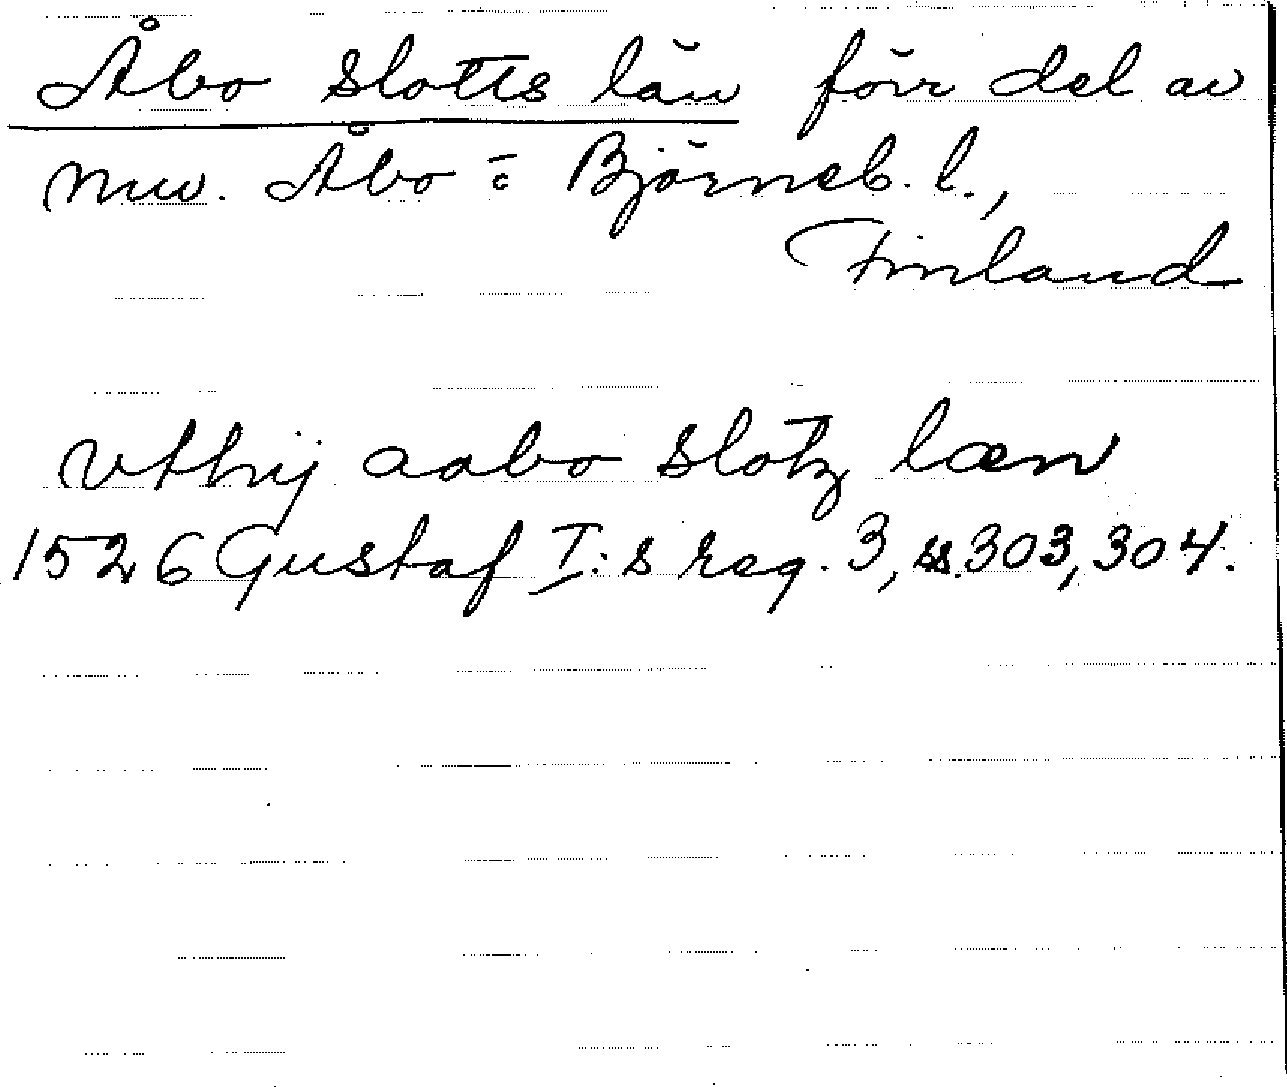 Åbo slotts län förr del av
nuv. Åbo o Björneb. l.,
Finland
vthij aabo slotz læn
1526 Gustaf I:s reg. 3, ss. 303, 304.